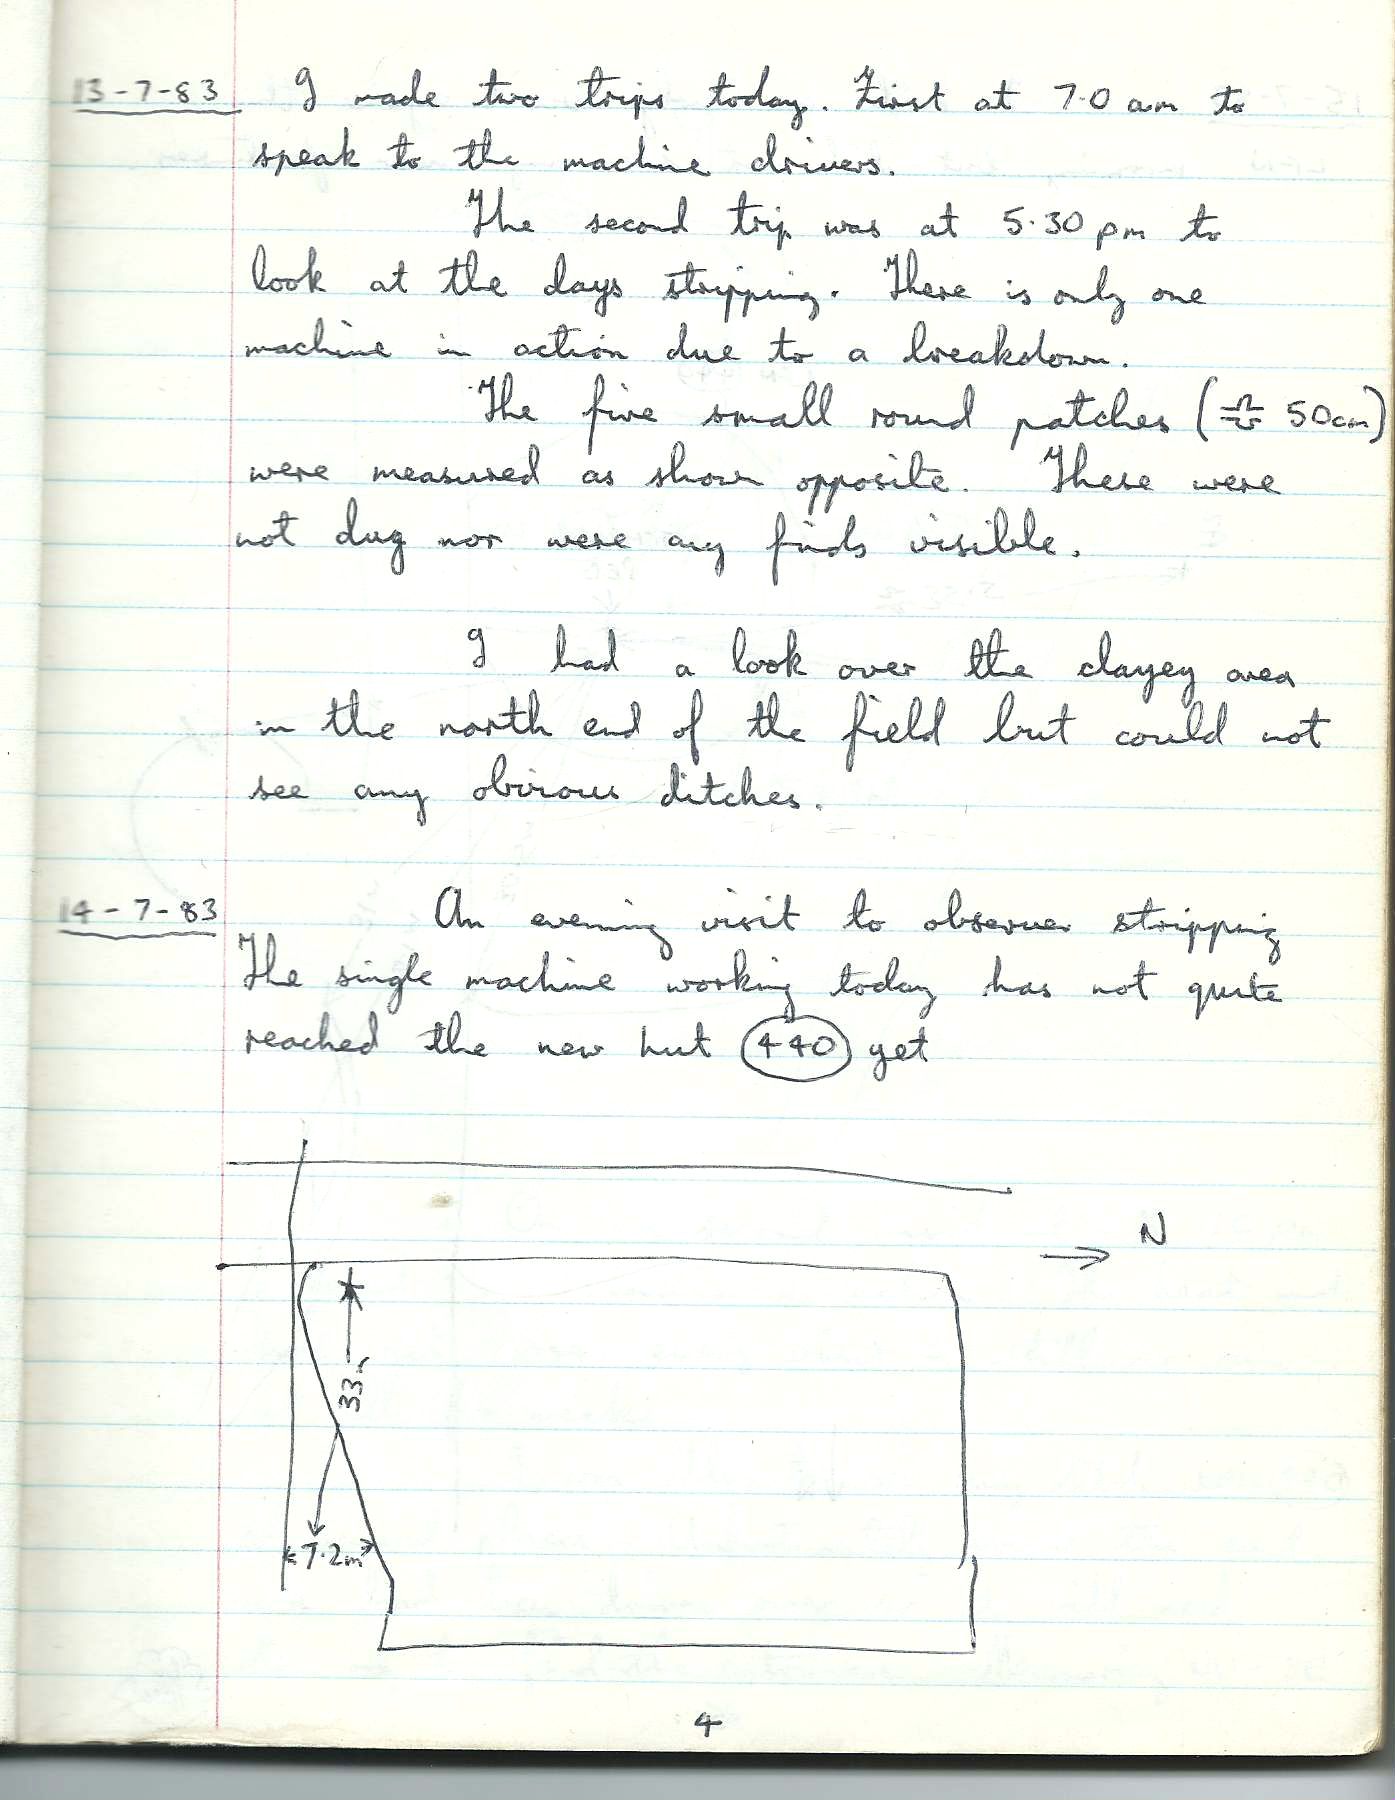 13-7-83 I made two trips today. First at 7.0 am to
speak to the machine drivers.
The second trip was at 5.30 pm to
look at the days stripping. There is only one
machine in action due to a breakdown.
The five small round patches (≑ 50cm)
were measured as shown opposite. These were
not dug nor were any finds visible.
I had a look over the clayey area
in the north end of the field but could not
see any obvious ditches.
14-7-83 An evening visit to observe stripping
The single machine working today has not quite
reached the new hut 440 yet
N
33m
7.2m
4